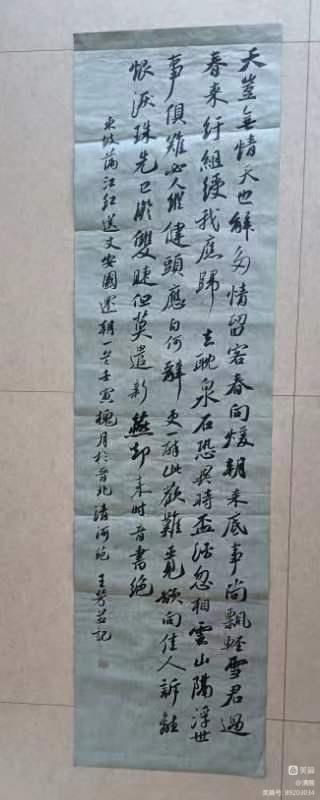 天豈無情天也解多情留客春向暖朝來底事尚飄輕雪君過
春來紆組綬我應歸去耽泉石恐異時盃酒忽相雲山隔浮世
事俱難必人縱健頭應白何辭更一醉此歡難覓欲向佳人訴離
恨淚珠先已凝雙睫但莫遣新燕却來時音書絕
東坡滿江紅送文安國還朝一首壬寅槐月於晉北清河 王記
美篇
美篇号: 89203034